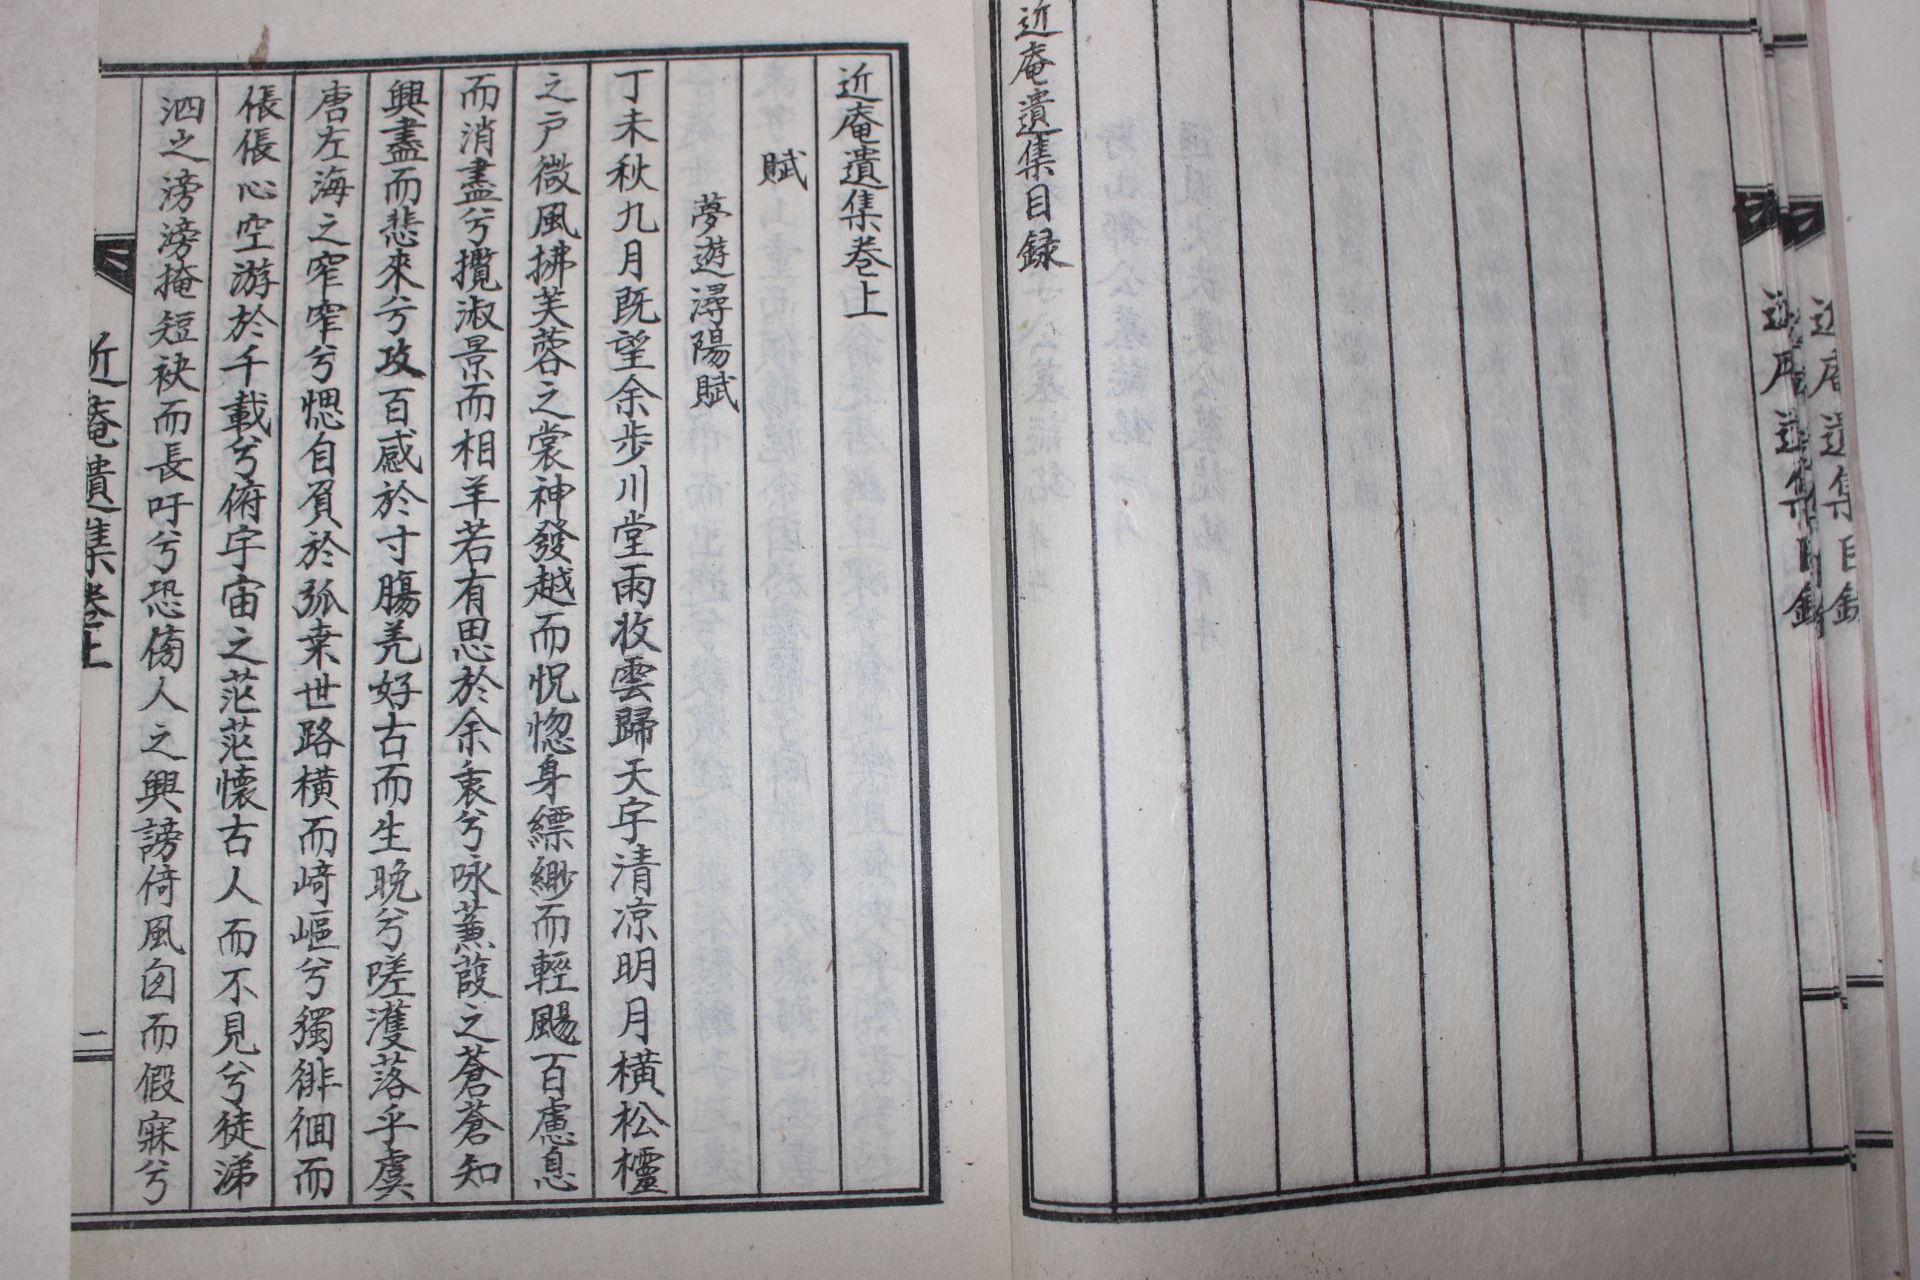 近庵遺集目録
近庵遺集卷上
賦
夢遊潯陽賦
丁未秋九月既望余步川堂雨收雲歸天宇清凉明月橫松櫺
之戶微風拂芙蓉之裳神發越而怳惚身縹緲而輕颺百慮息
而消盡兮攬淑景而相羊若有思於余衷兮咏蒹葭之蒼蒼知
興盡而悲來兮攻百感於寸腸羌好古而生晚兮嗟濩落乎虞
唐左海之窄窄兮愢自負於弧桒世路橫而崎嶇兮獨徘徊而
倀倀心空游於千載兮俯宇宙之茫茫懷古人而不見兮徒涕
泗之滂滂掩短袂而長吁兮恐傍人之興謗倚風囱而假寐兮
近庵遺集卷上
一